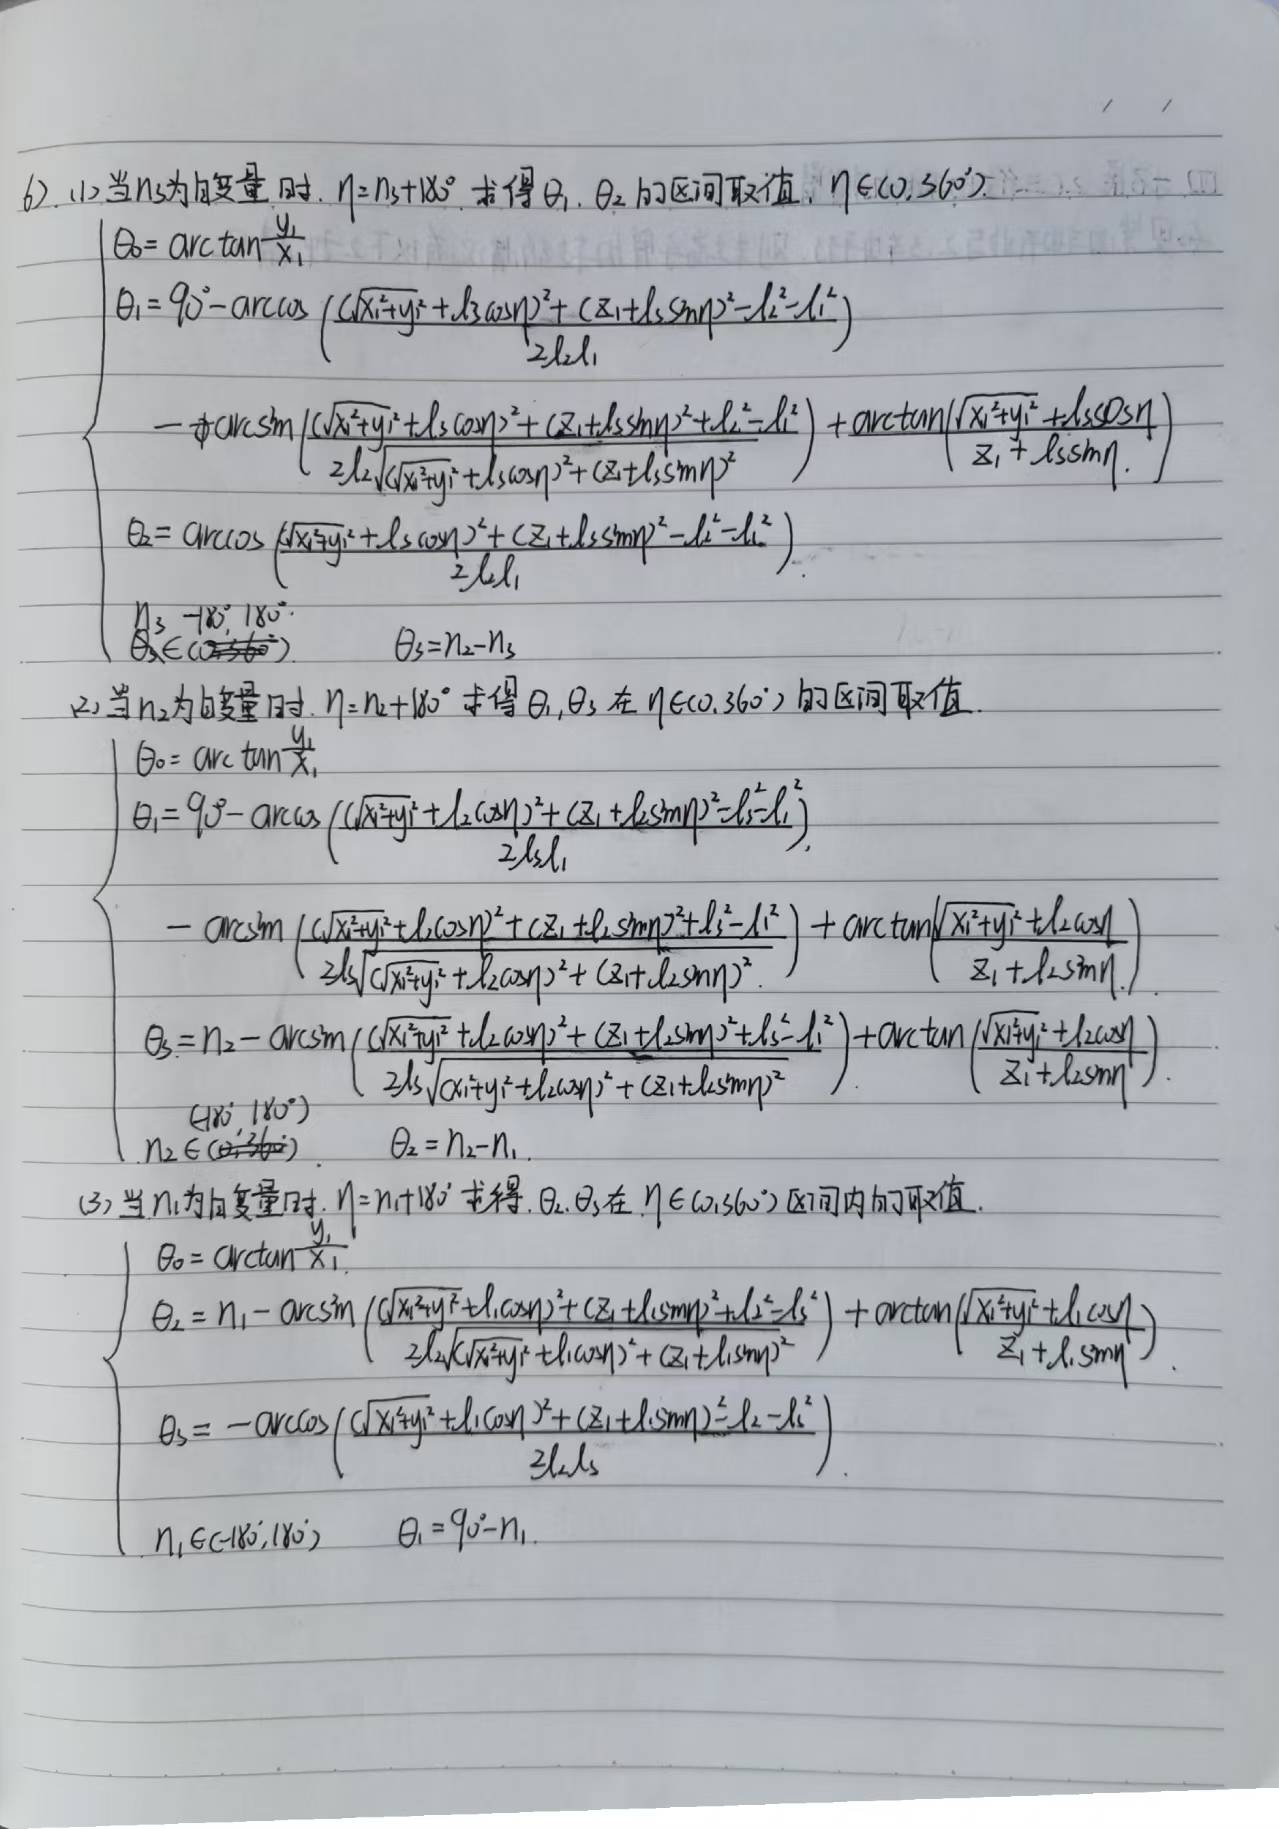 6).(1)当n₃为自变量时. η=n₃+180° 求得θ₁. θ₂的区间取值, η∈(0.360°).
θ₀=arctan y₁/x₁
θ₁=90°-arccos((√(x₁²+y₁²)+l₃cosη)²+(z₁+l₃sinη)²-l₂²-l₁²)/(2l₂l₁)
-arcsin((√(x₁²+y₁²)+l₃cosη)²+(z₁+l₃sinη)²+l₂²-l₁²)/(2l₂√((√(x₁²+y₁²)+l₃cosη)²+(z₁+l₃sinη)²))+arctan((√(x₁²+y₁²)+l₃cosη)/(z₁+l₃sinη.))
θ₂=arccos((√(x₁²+y₁²)+l₃cosη)²+(z₁+l₃sinη)²-l₂²-l₁²)/(2l₂l₁).
n₃ -180°,180°.
θ₃∈(0,360°) θ₃=n₂-n₃
(2)当n₂为自变量时. η=n₂+180° 求得θ₁,θ₃在η∈(0.360°)的区间取值.
θ₀=arctan y₁/x₁
θ₁=90°-arccos((√(x₁²+y₁²)+l₂cosη)²+(z₁+l₂sinη)²-l₃²-l₁²)/(2l₃l₁).
-arcsin((√(x₁²+y₁²)+l₂cosη)²+(z₁+l₂sinη)²+l₃²-l₁²)/(2l₃√((√(x₁²+y₁²)+l₂cosη)²+(z₁+l₂sinη)².))+arctan((√(x₁²+y₁²)+l₂cosη)/(z₁+l₂sinη.)).
θ₃=n₂-arcsin((√(x₁²+y₁²)+l₂cosη)²+(z₁+l₂sinη)²+l₃²-l₁²)/(2l₃√((x₁²+y₁²+l₂cosη)²+(z₁+l₂sinη)²)).+arctan((√(x₁²+y₁²)+l₂cosη)/(z₁+l₂sinη)).
(-180°,180°)
n₂∈(0,360°). θ₂=n₂-n₁.
(3)当n₁为自变量时. η=n₁+180° 求得.θ₂.θ₃在η∈(0,360°)区间内的取值.
θ₀=arctan y₁/x₁.
θ₂=n₁-arcsin((√(x₁²+y₁²)+l₁cosη)²+(z₁+l₁sinη)²+l₂²-l₃²)/(2l₂√((√(x₁²+y₁²)+l₁cosη)²+(z₁+l₁sinη)²))+arctan((√(x₁²+y₁²)+l₁cosη)/(z₁+l₁sinη)).
θ₃=-arccos((√(x₁²+y₁²)+l₁cosη)²+(z₁+l₁sinη)²-l₂-l₃²)/(2l₂l₃).
n₁∈(-180°,180°) θ₁=90°-n₁.